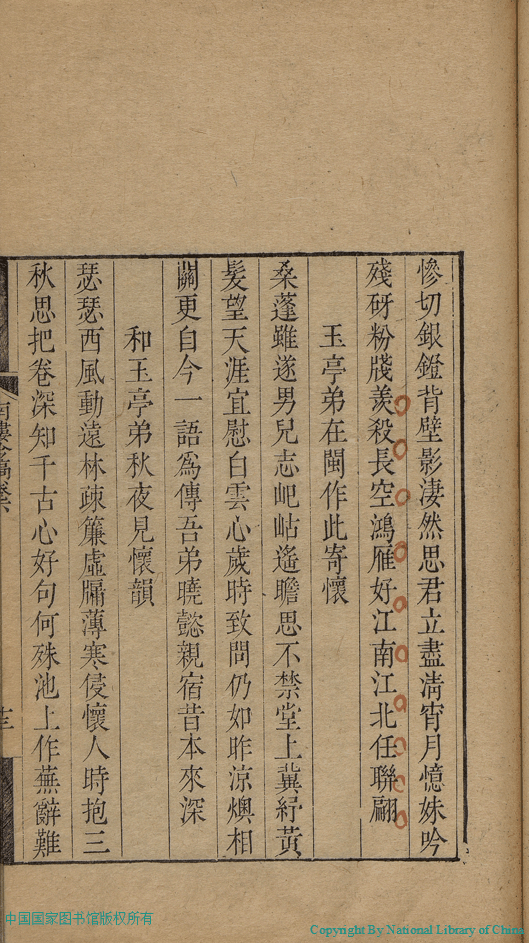 慘切銀鐙背壁影淒然思君立盡淸宵月憶妹吟
殘砑粉牋羨殺長空鴻雁好江南江北任聯翩
玉亭弟在閩作此寄懷
桑蓬雖遂男兒志屺岵遙瞻思不禁堂上冀紓黃
髮望天涯宜慰白雲心歲時致問仍如昨涼燠相
關更自今一語爲傳吾弟曉懿親宿昔本來深
和玉亭弟秋夜見懷韻
瑟瑟西風動遠林疎簾虛牖薄寒侵懷人時抱三
秋思把卷深知千古心好句何殊池上作蕪辭難
中国国家图书馆版权所有
Copyright By National Library of China